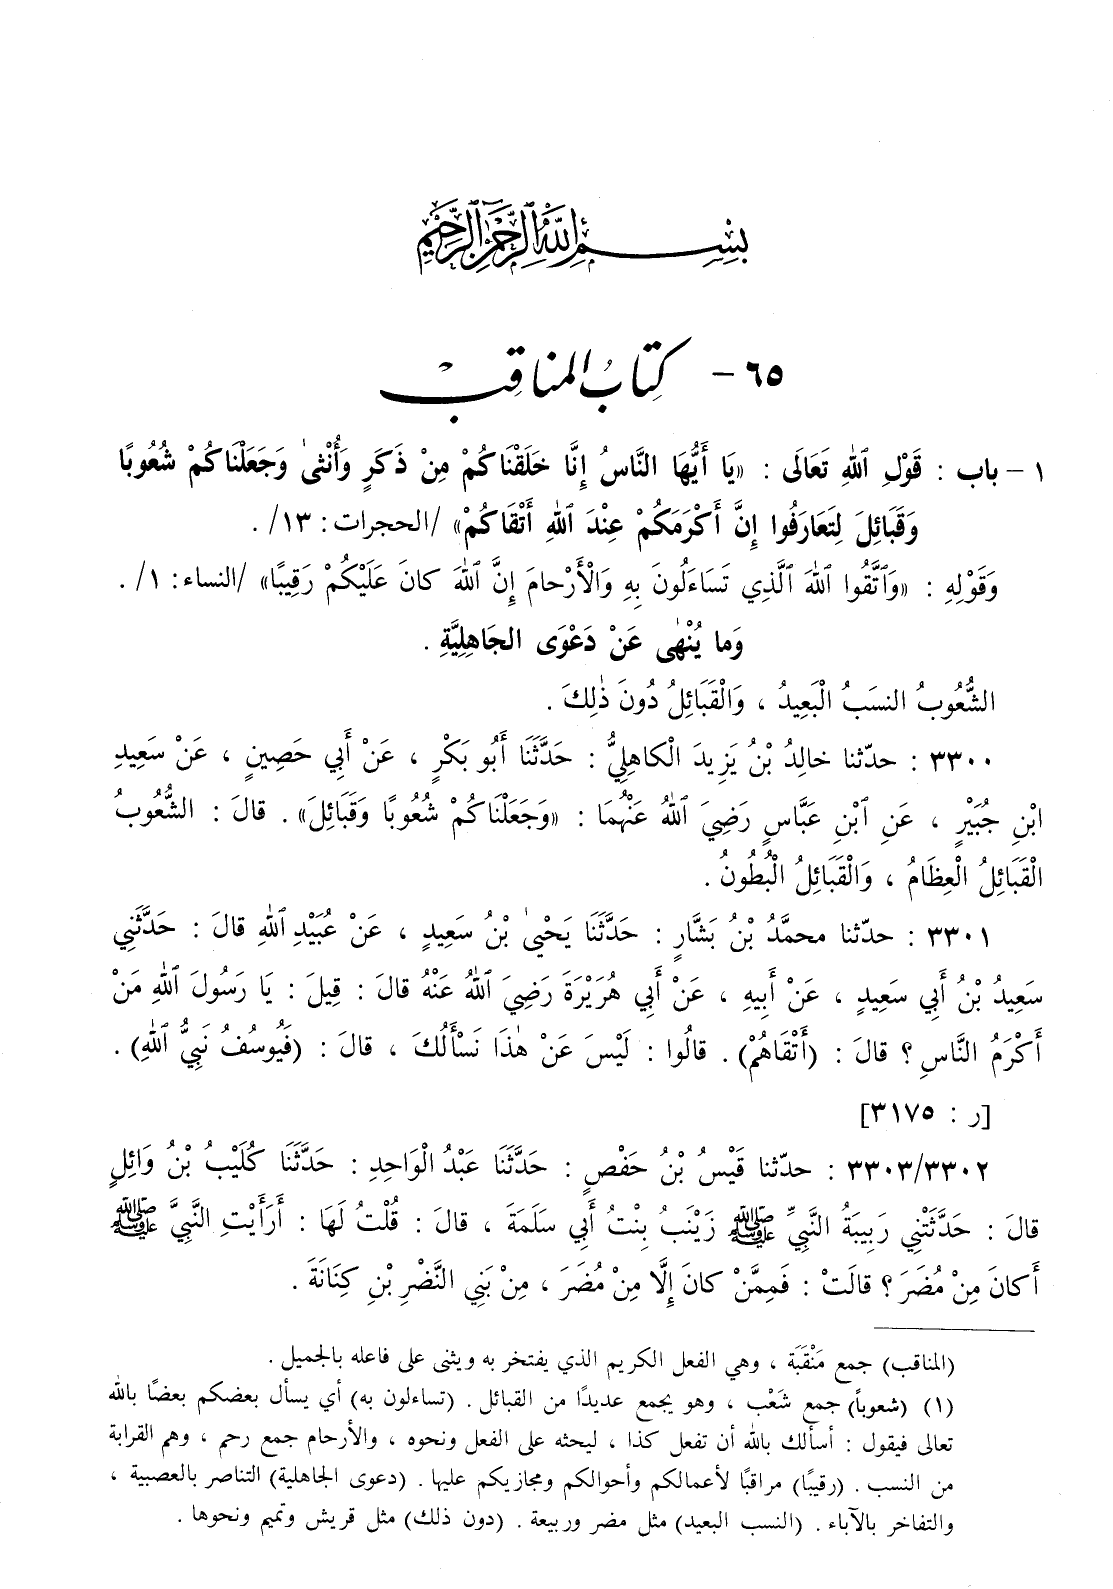 بِسْمِ اللَّهِ الرَّحْمَٰنِ الرَّحِيمِ
٦٥ - كِتَابُ المناقِبْ
١ - باب : قَوْلِ ٱللهِ تَعَالَى : «يَا أَيُّهَا النَّاسُ إِنَّا خَلَقْنَاكُمْ مِنْ ذَكَرٍ وَأُنْثىٰ وَجَعَلْنَاكُمْ شُعُوبًا
وَقَبَائِلَ لِتَعَارَفُوا إِنَّ أَكْرَمَكُمْ عِنْدَ ٱللهِ أَتْقَاكُمْ» /الحجرات : ١٣/ .
وَقَوْلِهِ : «وَٱتَّقُوا ٱللهَ ٱلَّذِي تَسَاءَلُونَ بِهِ وَالْأَرْحامَ إِنَّ ٱللهَ كانَ عَلَيْكُمْ رَقِيبًا» /النساء : ١/ .
وَما يُنْهٰى عَنْ دَعْوَى الجَاهِلِيَّةِ .
الشُّعُوبُ النسَبُ الْبَعِيدُ ، وَالْقَبَائِلُ دُونَ ذٰلِكَ .
٣٣٠٠ : حدّثنا خالِدُ بْنُ يَزِيدَ الْكاهِلِيُّ : حَدَّثَنَا أَبُو بَكْرٍ ، عَنْ أَبِي حَصِينٍ ، عَنْ سَعِيدِ
ابْنِ جُبَيْرٍ ، عَنِ ٱبْنِ عَبَّاسٍ رَضِيَ ٱللهُ عَنْهُمَا : «وَجَعَلْنَاكُمْ شُعُوبًا وَقَبَائِلَ» . قالَ : الشُّعُوبُ
الْقَبَائِلُ الْعِظَامُ ، وَالْقَبَائِلُ الْبُطُونُ .
٣٣٠١ : حدّثنا محمَّدُ بْنُ بَشَّارٍ : حَدَّثَنَا يَحْيىٰ بْنُ سَعِيدٍ ، عَنْ عُبَيْدِ ٱللهِ قالَ : حَدَّثَنِي
سَعِيدُ بْنُ أَبِي سَعِيدٍ ، عَنْ أَبِيهِ ، عَنْ أَبِي هُرَيْرَةَ رَضِيَ ٱللهُ عَنْهُ قالَ : قِيلَ : يَا رَسُولَ ٱللهِ مَنْ
أَكْرَمُ النَّاسِ ؟ قالَ : (أَتْقَاهُمْ) . قالُوا : لَيْسَ عَنْ هٰذَا نَسْأَلُكَ ، قالَ : (فَيُوسُفُ نَبِيُّ ٱللهِ) .
[ر : ٣١٧٥]
٣٣٠٣/٣٣٠٢ : حدّثنا قَيْسُ بْنُ حَفْصٍ : حَدَّثَنَا عَبْدُ الْوَاحِدِ : حَدَّثَنَا كُلَيْبُ بْنُ وَائِلٍ
قالَ : حَدَّثَتْنِي رَبِيبَةُ النَّبِيِّ ﷺ زَيْنَبُ بِنْتُ أَبِي سَلَمَةَ ، قالَ : قُلْتُ لَهَا : أَرَأَيْتِ النَّبِيَّ ﷺ
أَكانَ مِنْ مُضَرَ ؟ قالَتْ : فَمِمَّنْ كانَ إِلَّا مِنْ مُضَرَ ، مِنْ بَنِي النَّضْرِ بْنِ كِنَانَةَ .
(المناقب) جمع مَنْقَبَة ، وهي الفعل الكريم الذي يفتخر به ويثنى على فاعله بالجميل .
(١) (شعوباً) جمع شَعْب ، وهو يجمع عديدًا من القبائل . (تساءلون به) أي يسأل بعضكم بعضًا بالله
تعالى فيقول : أسألك بالله أن تفعل كذا ، ليحثه على الفعل ونحوه ، والأرحام جمع رحم ، وهم القرابة
من النسب . (رقيبًا) مراقبًا لأعمالكم وأحوالكم ومجازيكم عليها . (دعوى الجاهلية) التناصر بالعصبية ،
والتفاخر بالآباء . (النسب البعيد) مثل مضر وربيعة . (دون ذلك) مثل قريش وتميم ونحوها .